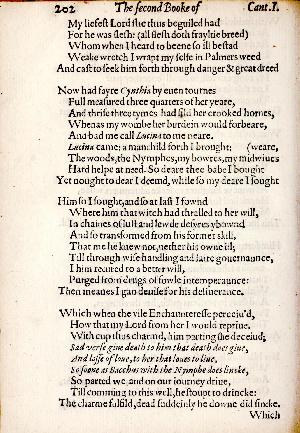 202 The second Booke of Cant. I.
My liefest Lord she thus beguiled had
For he was flesh: (all flesh doth frayltie breed)
Whom when I heard to beene so ill bestad
Weake wretch I wrapt my selfe in Palmers weed
And cast to seek him forth through danger & great dreed
Now had fayre Cynthia by euen tournes
Full measured three quarters of her yeare,
And thrise three tymes had fild her crooked hornes,
Whenas my wombe her burdein would forbeare,
And bad me call Lucina to me neare.
Lucina came: a manchild forth I brought: (weare,
The woods, the Nymphes, my bowres, my midwiues
Hard helpe at need. So deare thee babe I bought
Yet nought to dear I deemd, while so my deare I sought
Him so I sought, and so at last I fownd
Where him that witch had thralled to her will,
In chaines of lust and lewde desyres ybownd
And so transformed from his former skill,
That me he knew not, nether his owne ill;
Till through wise handling and faire gouernaunce,
I him recured to a better will,
Purged from drugs of fowle intemperaunce:
Then meanes I gan deuise for his deliuerance.
Which when the vile Enchaunteresse perceiu'd,
How that my Lord from her I would repriue.
With cup thus charmd, him parting she deceiud;
Sad verse giue death to him that death does giue,
And losse of loue, to her that loues to liue,
So soone as Bacchus with the Nymphe does lincke,
So parted we and on our iourney driue,
Till comming to this well, he stoupt to drincke:
The charme fulfild, dead suddeinly he downe did sincke.
Which